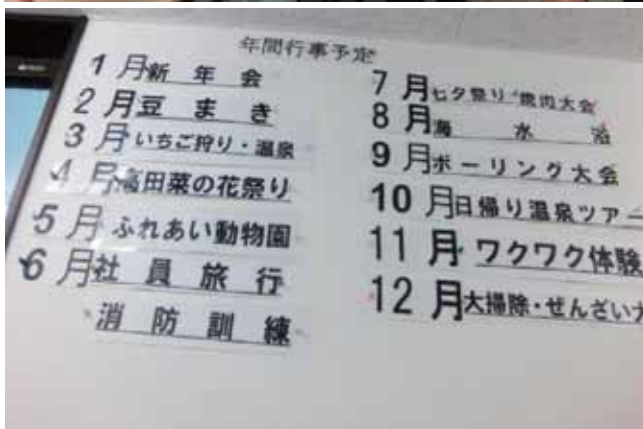 年間行事予定
1月新年会
2月豆まき
3月いちご狩り・温泉
4月高田菜の花祭り
5月ふれあい動物園
6月社員旅行
消防訓練
7月七夕祭り・焼肉大会
8月海水浴
9月ボーリング大会
10月日帰り温泉ツアー
11月ワクワク体験
12月大掃除・ぜんざい大